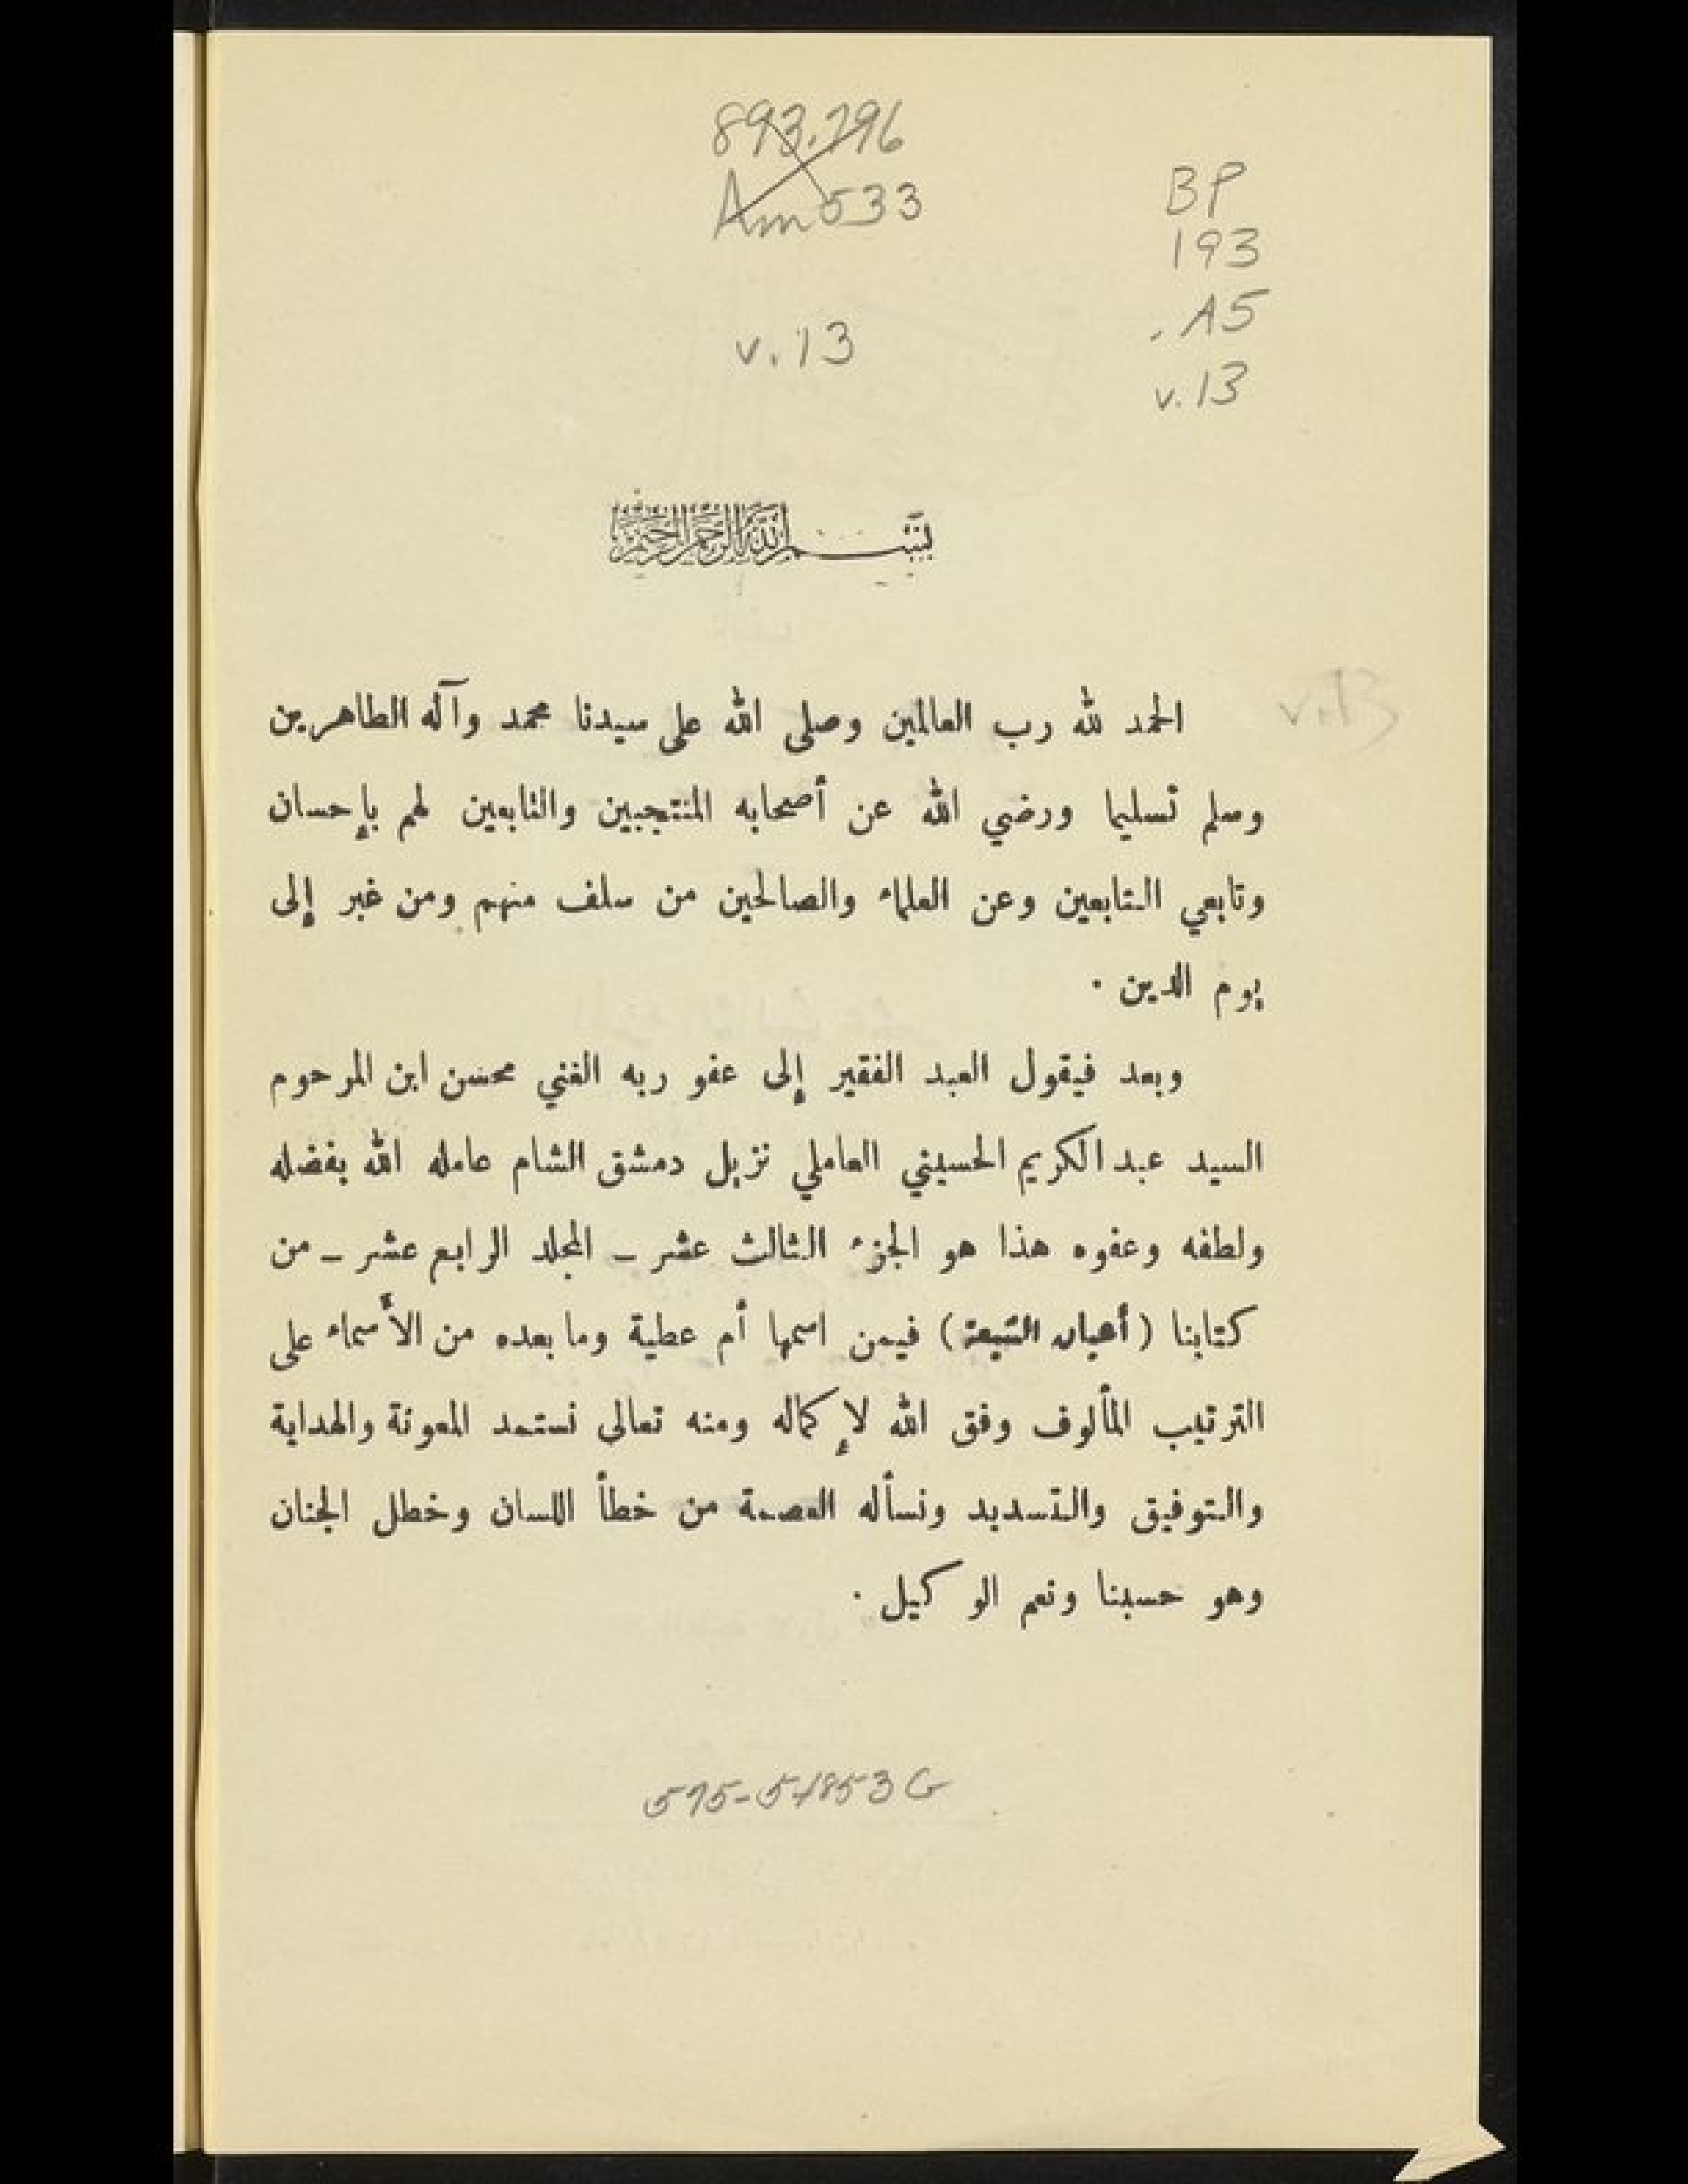 893.796
Am533
BP
193
.A5
v.13
v.13
بسم الله الرحمن الرحيم
الحمد لله رب العالمين وصلى الله على سيدنا محمد وآله الطاهرين
وسلم تسليما ورضي الله عن أصحابه المنتجبين والتابعين لهم بإحسان
وتابعي التابعين وعن العلماء والصالحين من سلف منهم ومن غبر إلى
يوم الدين .
وبعد فيقول العبد الفقير إلى عفو ربه الغني محسن ابن المرحوم
السيد عبد الكريم الحسيني العاملي نزيل دمشق الشام عامله الله بفضله
ولطفه وعفوه هذا هو الجزء الثالث عشر – المجلد الرابع عشر – من
كتابنا ( أعيان الشيعة ) فيمن اسمها أم عطية وما بعده من الأسماء على
الترتيب المألوف وفق الله لإكماله ومنه تعالى نستمد المعونة والهداية
والتوفيق والتسديد ونسأله العصمة من خطأ اللسان وخطل الجنان
وهو حسبنا ونعم الوكيل .